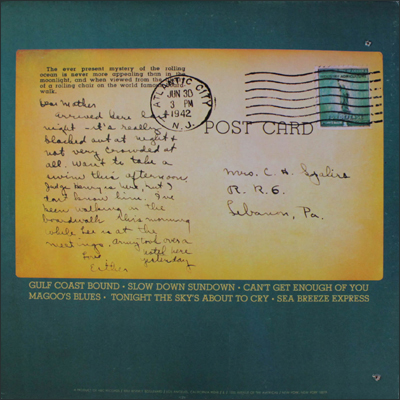 The ever present mystery of the rolling
ocean is never more appealing than in the
moonlight, and when viewed from the
of a rolling chair on the world famous board
walk.
ATLANTIC CITY
JUN 30
3 PM
1942
N.J.
POST CARD
Dear Mother
arrived here last
night – it's really
blacked out at night &
not very crowded at
all. Want to take a
swim this afternoon.
Judge Henry is here, but I
don't know him. I've
been walking on the
boardwalk this morning
while Lee is at the
meetings. Army took over a
hotel here
yesterday
Love
Mrs. C. H.
R. R. 6.
Lebanon, Pa.
GULF COAST BOUND • SLOW DOWN SUNDOWN • CAN'T GET ENOUGH OF YOU
MAGOO'S BLUES • TONIGHT THE SKY'S ABOUT TO CRY • SEA BREEZE EXPRESS